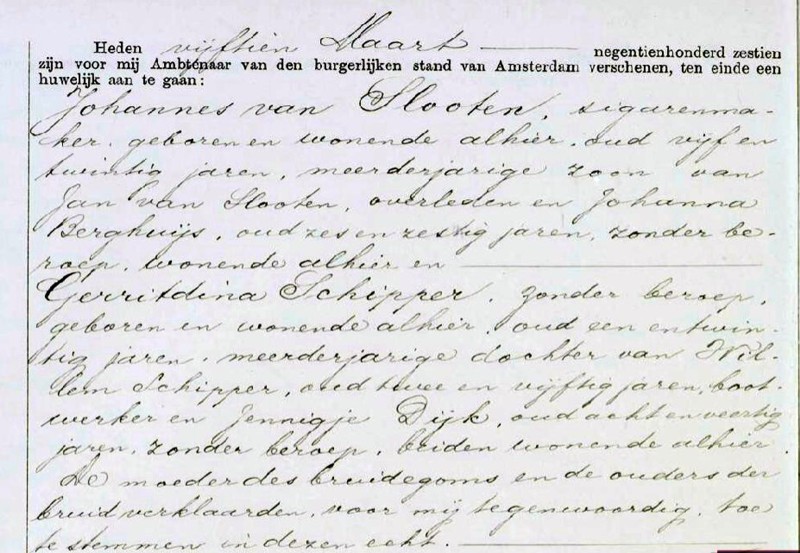 Heden vijftien Maart negentienhonderd zestien
zijn voor mij Ambtenaar van den burgerlijken stand van Amsterdam verschenen, ten einde een
huwelijk aan te gaan:
Johannes van Slooten, sigarenma-
ker, geboren en wonende alhier, oud vijf en
twintig jaren, meerderjarige zoon van
Jan van Slooten, overleden en Johanna
Berghuijs, oud zes en zestig jaren, zonder be-
roep, wonende alhier en
Gerritdina Schipper, zonder beroep,
geboren en wonende alhier, oud een en twin-
tig jaren, meerderjarige dochter van Wil-
lem Schipper, oud twee en vijftig jaren, boot-
werker en Jennigje Dijk, oud acht en veertig
jaren, zonder beroep, beiden wonende alhier.
De moeder des bruidegoms en de ouders der
bruid verklaarden, voor mij tegenwoordig, toe
te stemmen in dezen echt.